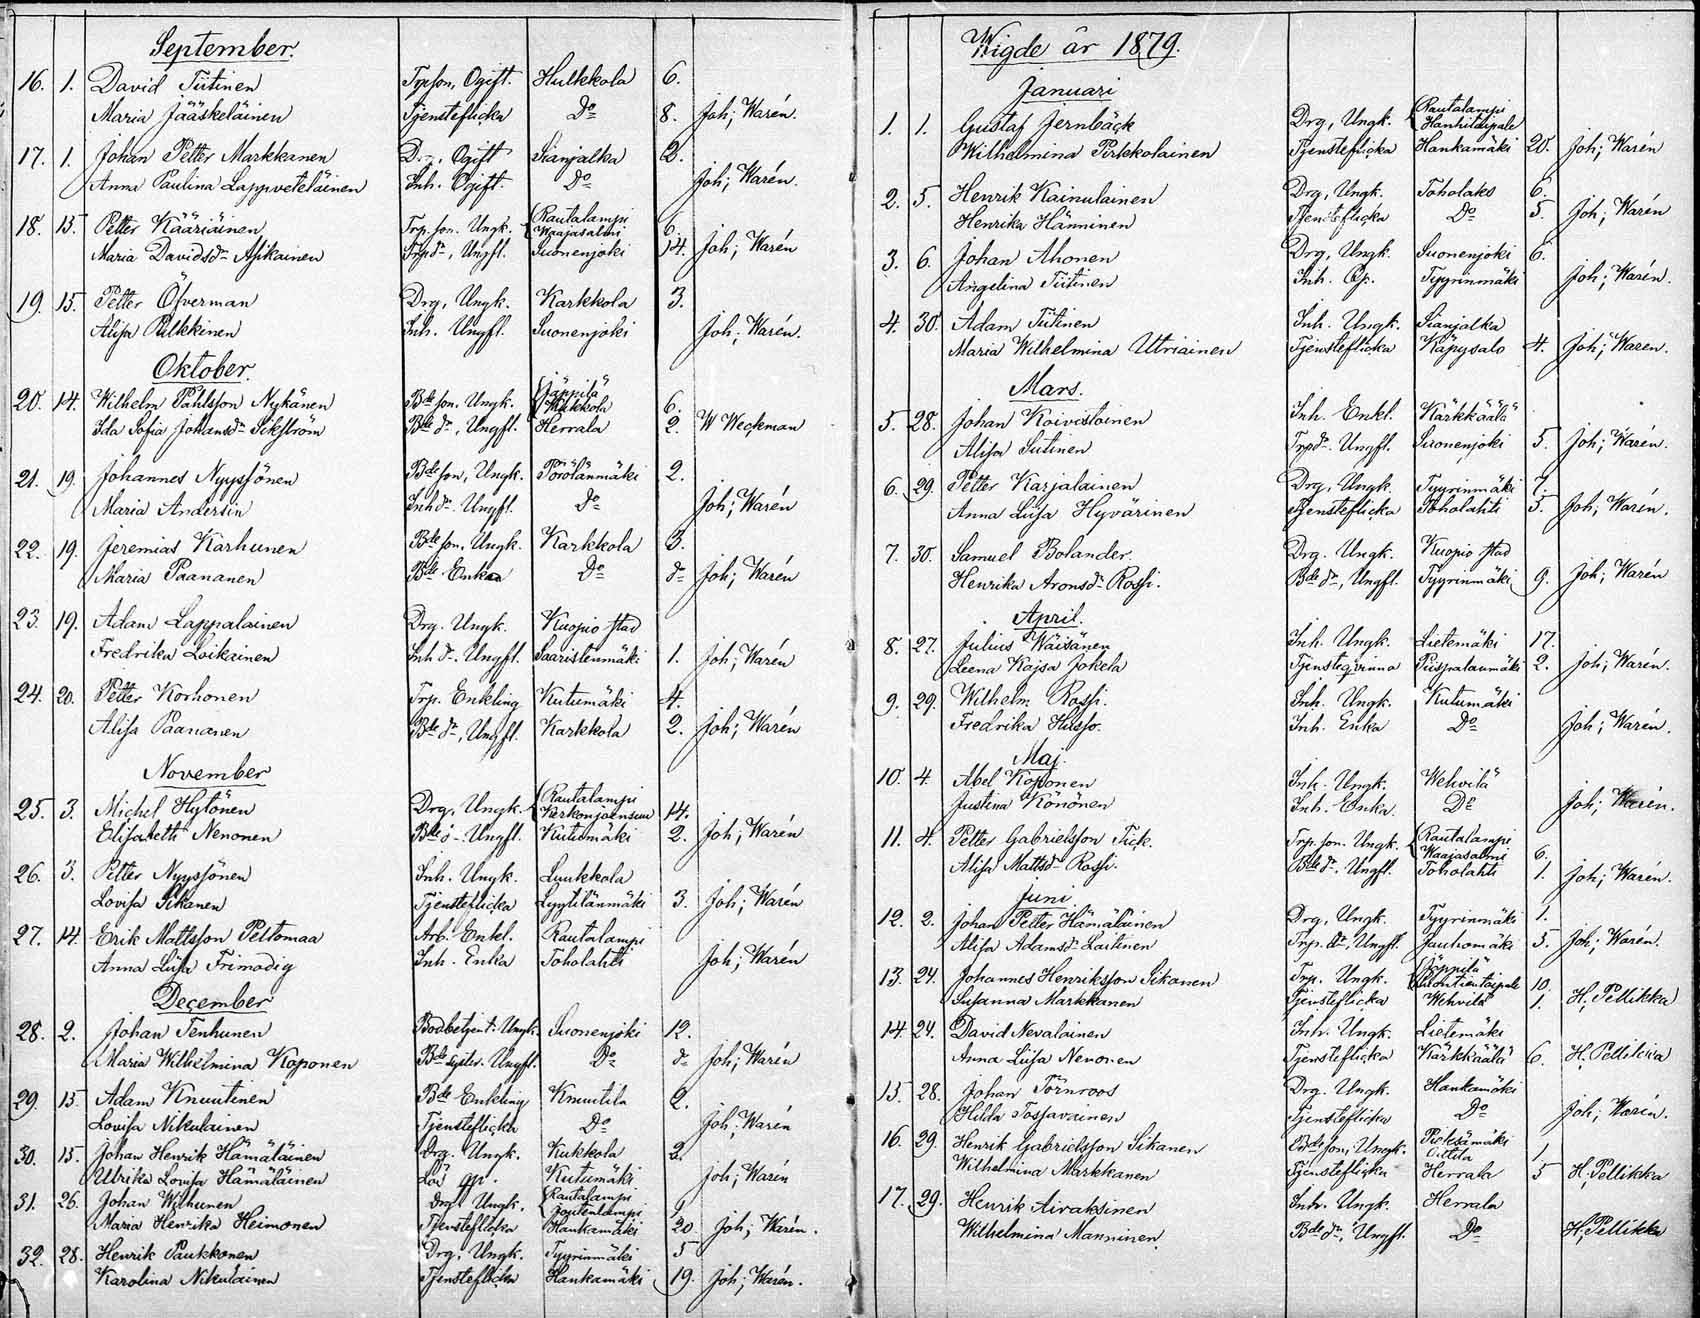 September.
16. 1. David Tiitinen Trpson, Ogift. Hulkkola 6.
Maria Jääskeläinen Tjensteflicka Do 8. Joh; Warén.
17. 1. Johan Petter Markkanen Drg, Ogift Sianjalka 2.
Anna Paulina Lappveteläinen Inh. Ogift. Do Joh; Warén.
18. 15. Petter Kääriäinen Trp. son. Ungk. Rautalampi Waajasalmi 6.
Maria Davidsdr Asikainen Trpdr, Ungfl. Suonenjoki 14. Joh; Warén
19. 15. Petter Öfverman Drg, Ungk. Karkkola 3.
Alisa Pulkkinen Inh. Ungfl. Suonenjoki Joh; Warén.
Oktober.
20. 14. Wilhelm Påhlsson Nykänen Bde son. Ungk. Jäppilä 6.
Ida Sofia Johansdr Sekström Bde dr, Ungfl. Herrala 2. W Weckman
21. 19. Johannes Nyyssönen Bde son, Ungk. Pörölänmäki 2.
Maria Anderlin Inh dr. Ungfl. Do Joh; Warén
22. 19. Jeremias Karhunen Bde son, Ungk. Karkkola 3.
Maria Paananen Bde Enka Do do Joh; Warén
23. 19. Adam Lappalainen Drg. Ungk. Kuopio stad
Fredrika Loikainen Inh dr. Ungfl. Saaristenmäki 1. Joh; Warén
24. 20. Petter Korhonen Trp. Enkling Kutumäki 4.
Alisa Paananen Bde dr, Ungfl. Karkkola 2. Joh; Warén
November
25. 3. Michel Hytönen Drg, Ungk. Rautalampi Kerkonjoensuu 14.
Elisabeth Nenonen Bde dr. Ungfl. Kutumäki 2. Joh; Warén
26. 3. Petter Nyyssönen Inh. Ungk. Luukkola
Lovisa Sikanen Tjensteflicka Lyytilänmäki 3. Joh; Warén
27. 14. Erik Mattsson Peltomaa Arb. Enkl. Rautalampi
Anna Lisa Frimodig Inh. Enka Toholahti Joh; Warén
December
28. 2. Johan Tenhunen Bodbetjent. Ungk. Suonenjoki 12.
Maria Wilhelmina Koponen Bde syster. Ungfl. Do do Joh; Warén
29. 15. Adam Knuutinen Bde Enkling Knuutila 2.
Lovisa Nikulainen Tjensteflicka Do Joh; Warén
30. 15. Johan Henrik Hämäläinen Drg. Ungk. Kukkola 2.
Ulrika Lovisa Hämäläinen Kutumäki Joh; Warén
31. 26. Johan Wilhunen Drg. Ungk. Rautalampi 9.
Maria Henrika Heimonen Tjensteflicka Hankamäki 20. Joh; Warén.
32. 28. Henrik Paukkonen Drg. Ungk. Tyyrinmäki 5
Karolina Nikulainen Tjensteflicka Hankamäki 19. Joh; Warén.
Wigde år 1879.
Januari
1. 1. Gustaf Jernbäck Drg, Ungk. Rautalampi Hanhitaipale
Wilhelmina Pirkkolainen Tjensteflicka Hankamäki 20. Joh; Warén
2. 5. Henrik Kainulainen Drg, Ungk. Toholaks 6.
Henrika Hänninen Tjensteflicka Do 5. Joh; Warén
3. 6. Johan Ahonen Drg, Ungk. Suonenjoki 6.
Angelina Tiitinen Inh. Og. Tyyrinmäki Joh; Warén.
4. 30. Adam Tiitinen Inh. Ungk. Sianjalka
Maria Wilhelmina Utriainen Tjensteflicka Käpysalo 4. Joh; Warén.
Mars.
5. 28. Johan Koivistoinen Inh. Enkl. Kärkkäälä
Alisa Sutinen Trpdr. Ungfl. Suonenjoki 5. Joh; Warén.
6. 29. Petter Karjalainen Drg, Ungk. Tyyrinmäki 7.
Anna Lisa Hyvärinen Tjensteflicka Toholahti 5. Joh; Warén.
7. 30. Samuel Bolander. Drg. Ungk. Kuopio stad
Henrika Aronsdr Rossi. Bde dr, Ungfl. Tyyrinmäki 9. Joh; Warén
April.
8. 27. Julius Wäisänen Inh. Ungk. Lietemäki 17.
Leena Kajsa Jokela Tjenstegvinna Piispalanmäki 2. Joh; Warén.
9. 29. Wilhelm Rossi. Inh. Ungk. Kutumäki
Fredrika Husso. Inh. Enka Do Joh; Warén.
Maj.
10. 4. Abel Koponen Inh. Ungk. Wehvilä
Justina Könönen Inh. Enka. Do Joh; Warén.
11. 4. Petter Gabrielsson Tick. Trp. son. Ungk. Rautalampi Waajasalmi 6.
Alisa Mattsdr Rossi. Bde dr. Ungfl. Toholahti 1. Joh; Warén.
Juni
12. 2. Johan Petter Hämäläinen Drg, Ungk. Tyyrinmäki 1.
Alisa Adamsdr Lautinen Trp. dr, Ungfl. Jauhomäki 5. Joh; Warén.
13. 24. Johannes Henriksson Sikanen Trp. Ungk. Jäppilä 10.
Susanna Markkanen Tjensteflicka Wehvilä 1. H. Pellikka
14. 24. David Nevalainen Inh. Ungk. Lietemäki
Anna Lisa Nenonen Tjensteflicka Kärkkäälä 6. H. Pellikka
15. 28. Johan Törnroos Drg. Ungk. Hankamäki
Hilda Tossavainen Tjensteflicka Do Joh; Warén.
16. 29. Henrik Gabrielsson Sikanen Bde son, Ungk. Pieksämäki 1.
Wilhelmina Markkanen Tjensteflicka Herrala 5 H. Pellikka
17. 29. Henrik Airaksinen Inh. Ungk. Herrala
Wilhelmina Manninen. Bde dr, Ungfl. Do H. Pellikka